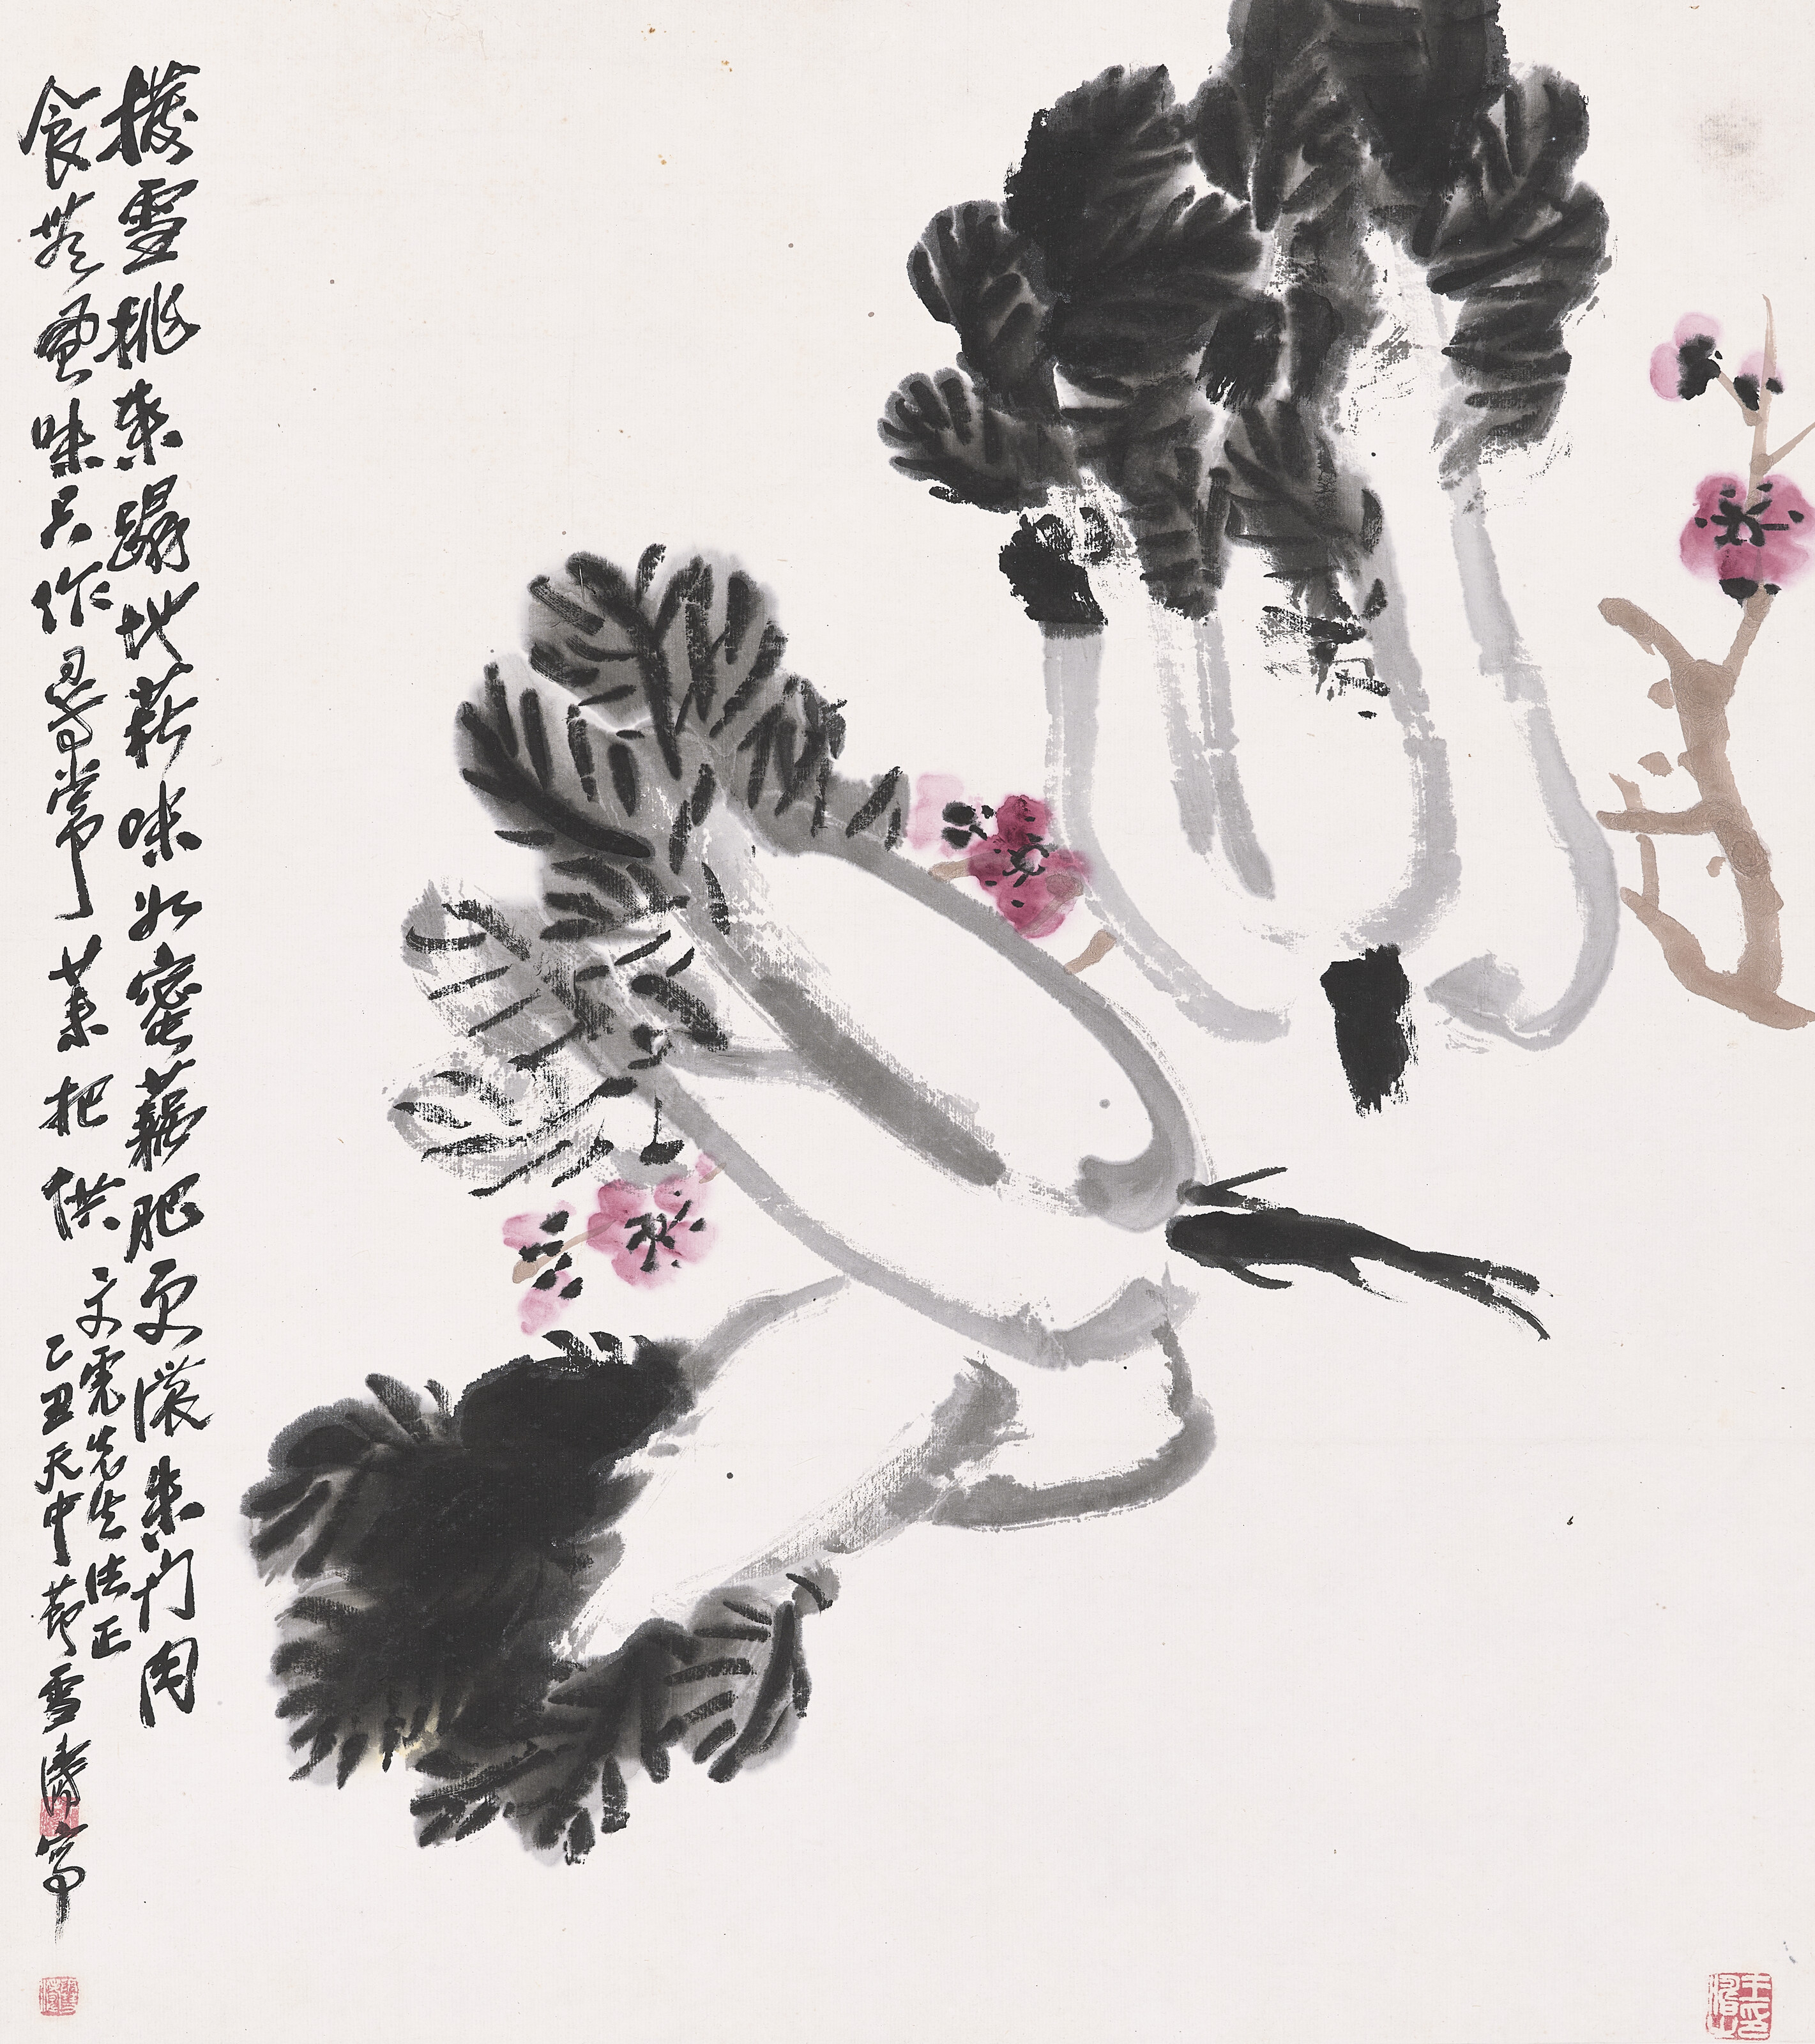 撥雪挑來蹋地菘味如蜜藕更肥濃朱门肉
食無風味只作尋常菜把供
文霓先生法正
乙丑天中節雪濤寫